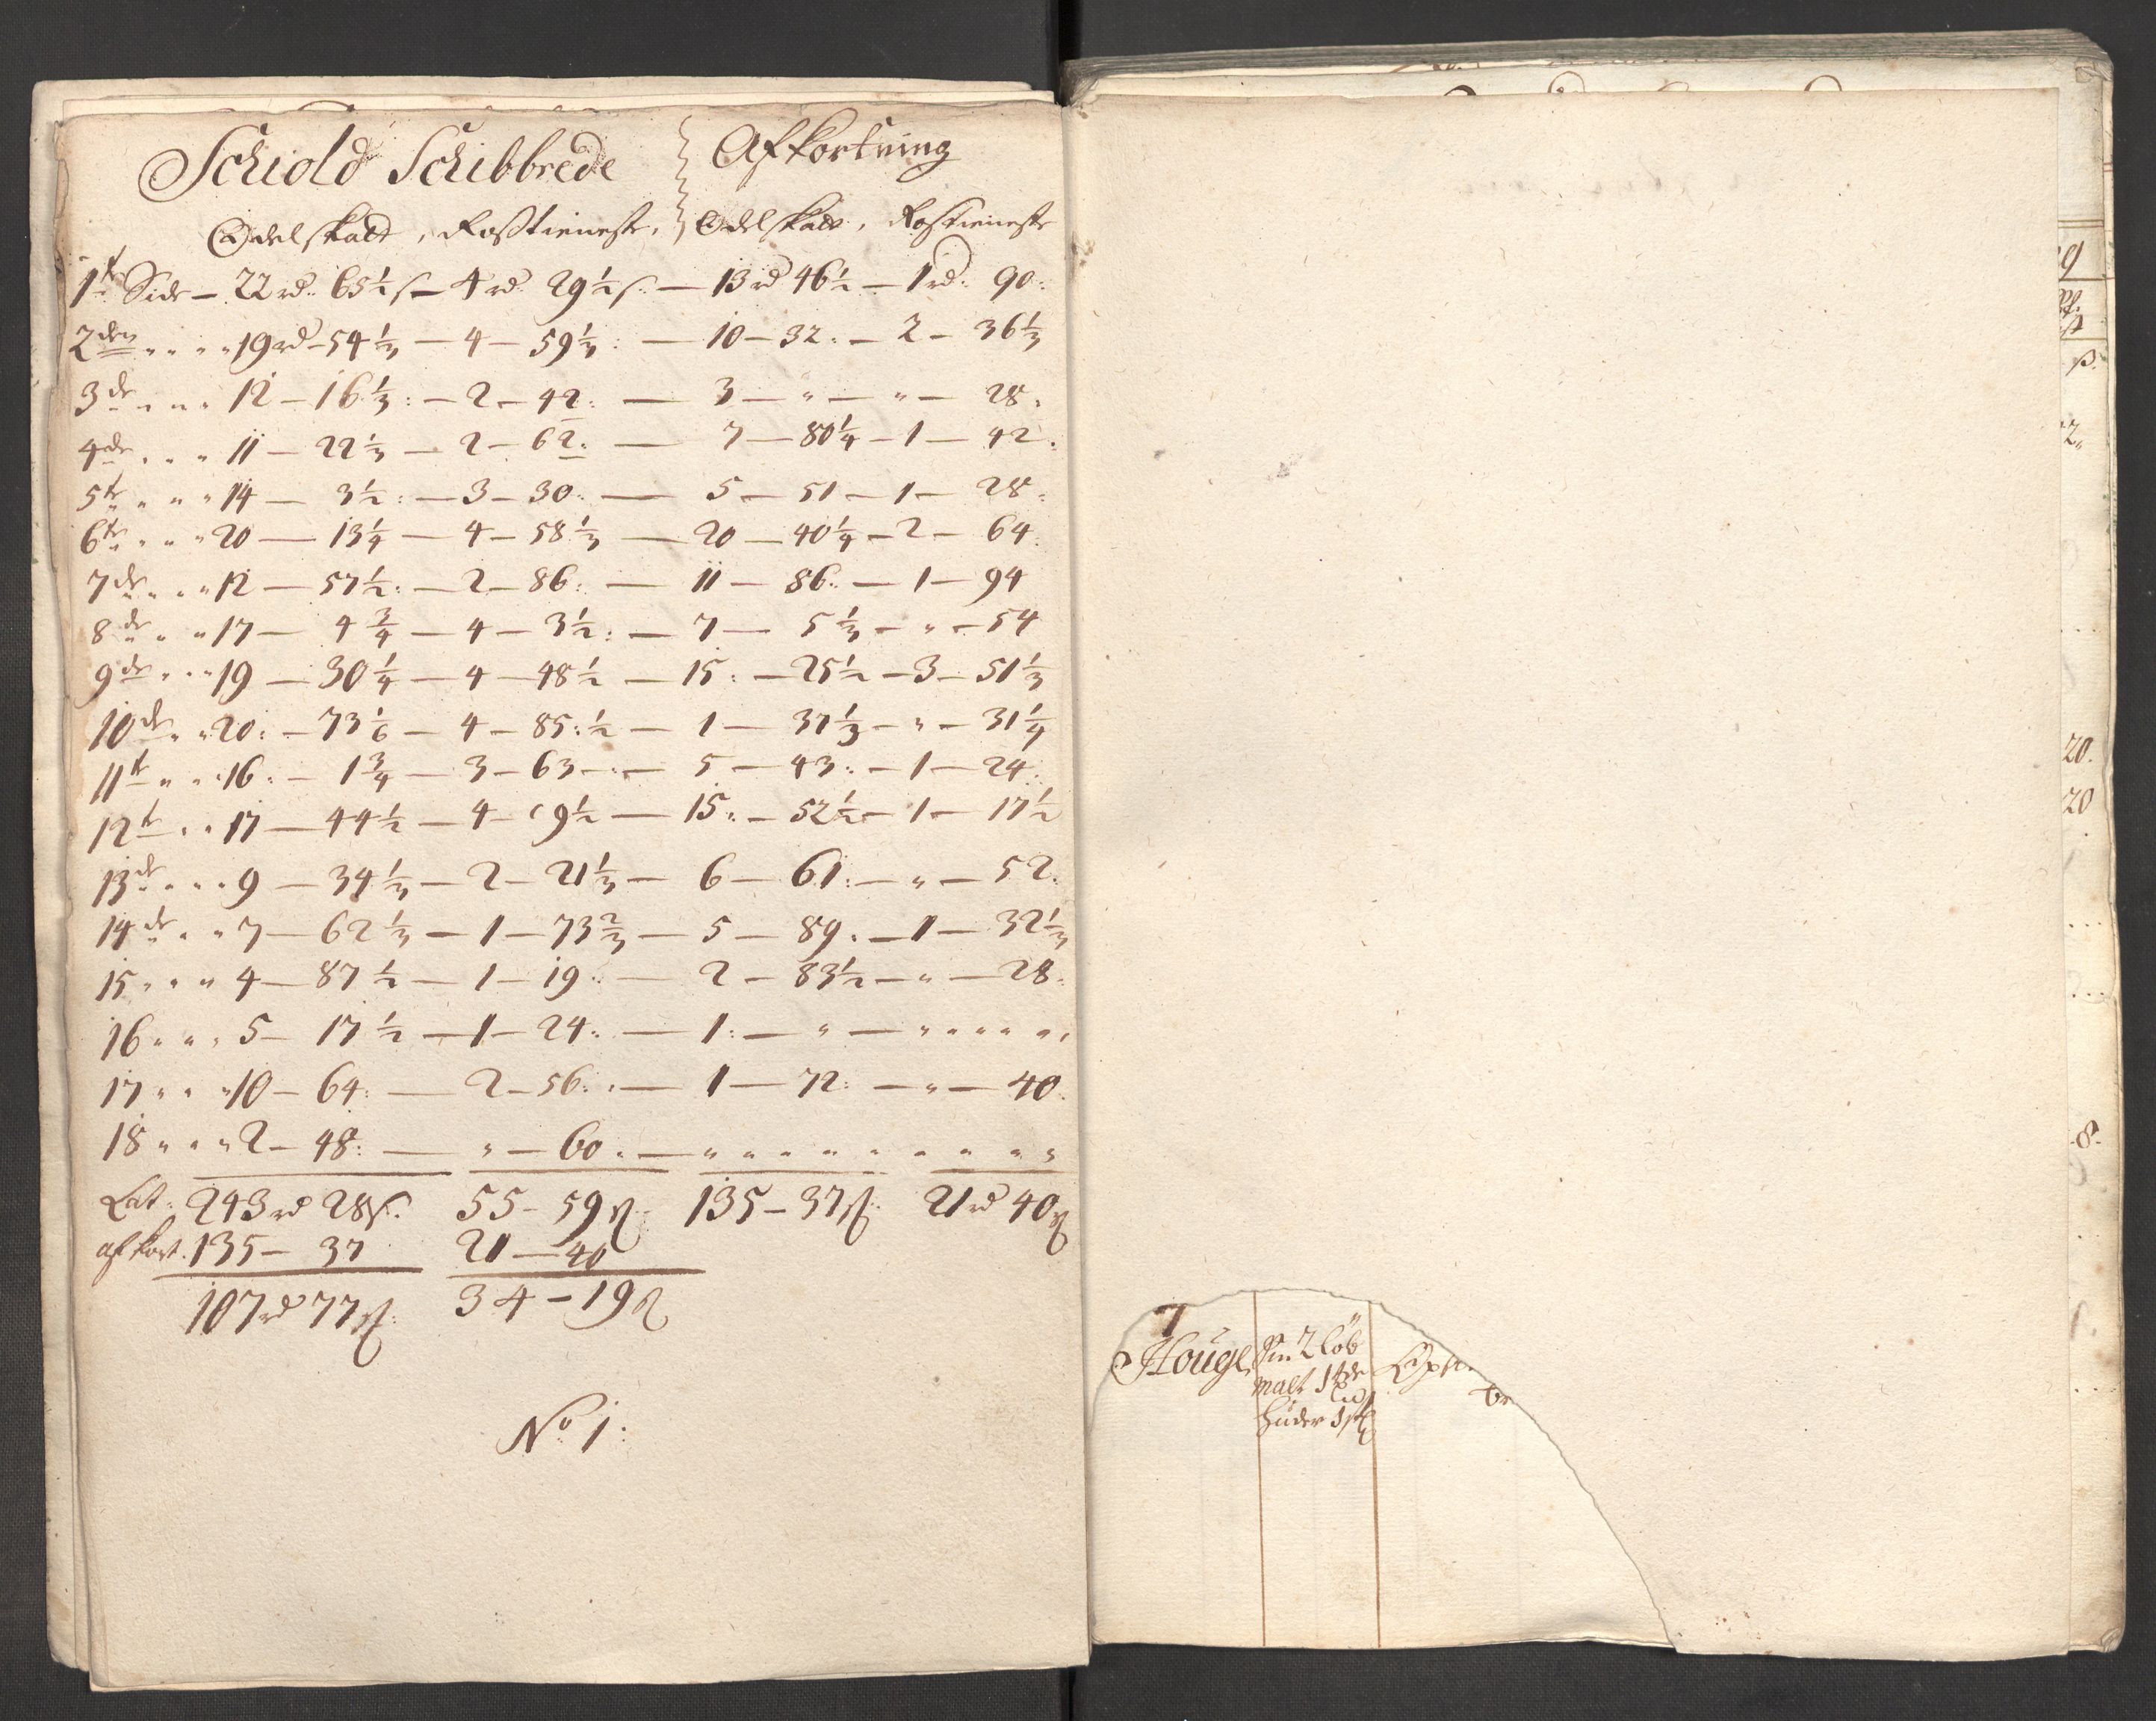 Schiold Schibbrede Afkortning
Odelskatt, Rosstieniste, Odelskatt, Rostieniste
1te Side — 22 rd. 65½ s — 4 rd. 29½ s. — 13 rd 46½ — 1 rd. 90:
2den " " " 19 rd — 54⅓ — 4 — 59⅓: — 10 — 32: — 2 — 36⅓
3de " " " 12 — 16⅓: — 2 — 42: — 3 — " — " — 28.
4de " " " 11 — 22⅓ — 2 — 62: — 7 — 80¼ — 1 — 42.
5te " " " 14 — 3½: — 3 — 30: — 5 — 51 — 1 — 28:
6te " " " 20 — 13¼ — 4 — 58⅓ — 20 — 40¼ — 2 — 64.
7de " " " 12 — 57½: — 2 — 86: — 11 — 86: — 1 — 94
8de " " 17 — 4¾ — 4 — 3½: — 7 — 5⅓ — " — 54
9de " " " 19 — 30¼ — 4 — 48½ — 15: — 25½ — 3 — 51⅓
10de " " 20: — 73⅙ — 4 — 85:½ — 1 — 37⅓ — " — 31¼
11te " " " 16: — 1¾ — 3 — 63 — 5 — 43: — 1 — 24:
12te " " 17 — 44½ — 4 — 9½ — 15: — 52½ — 1 — 17½
13de " " " 9 — 34⅓ — 2 — 21⅓ — 6 — 61: — " — 52.
14de " " 7 — 62⅓ — 1 — 73⅔ — 5 — 89. — 1 — 32⅓
15 " " " 4 — 87½ — 1 — 19: — 2 — 83½ — " — 28.
16 " " " 5 — 17½ — 1 — 24: — 1: — " — " " " " " "
17 " " " 10 — 64: — 2 — 56: — 1 — 72: — " — 40.
18 " " " 2 — 48: — " — 60. — " " " " " " " " "
Lat: 243 rd 28 s. 55 — 59 s 135 — 37 s. 21 rd 40 s
afkort. 135 — 37 21 — 40
107 rd 77 s. 34 — 19 s
No 1:
7
Houge
2 löb
malt 1 tde
huder 1